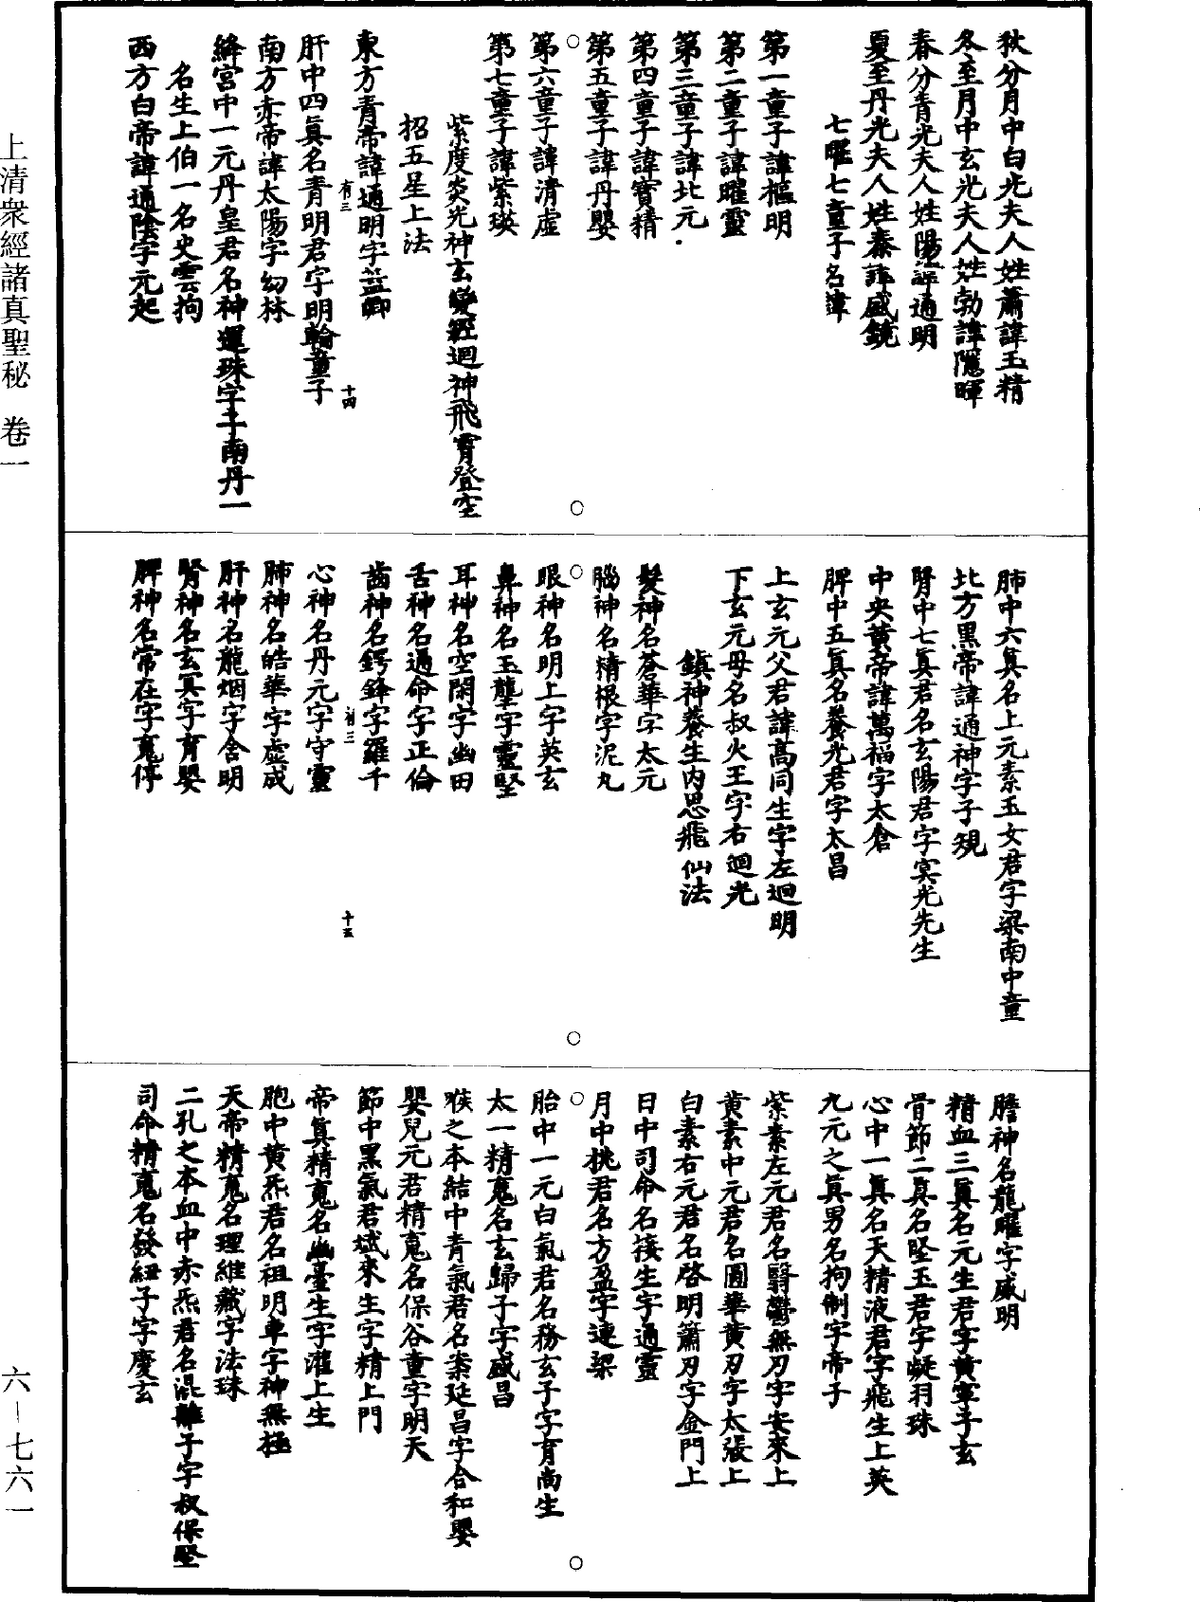 秋分月中白光夫人姓蕭諱玉精
冬至月中玄光夫人姓勃諱隱暉
春分青光夫人姓陽諱通明
夏至丹光夫人姓泰諱盛鏡
七曜七童子名諱
第一童子諱樞明
第二童子諱曜靈
第三童子諱北元
第四童子諱寶精
第五童子諱丹嬰
第六童子諱清虛
第七童子諱紫瑛
紫度炎光神玄變經迴神飛霄登空
招五星上法
東方青帝諱通明字益卿
有三
十四
肝中四真名青明君字明輪童子
南方赤帝諱太陽字幼林
絳宮中一元丹皇君名神運珠字子南丹一
名生上伯一名史雲拘
西方白帝諱通陰字元起
肺中六真名上元素玉女君字梁南中童
北方黑帝諱通神字子規
腎中七真君名玄陽君字冥光先生
中央黃帝諱萬福字太倉
脾中五真名養光君字太昌
上玄元父君諱高同生字左迴明
下玄元母名叔火王字右迴光
鎮神養生內思飛仙法
髮神名蒼華字太元
腦神名精根字泥丸
眼神名明上字英玄
鼻神名玉壟字靈堅
耳神名空閑字幽田
舌神名通命字正倫
齒神名鍔鋒字羅千
三
十五
心神名丹元字守靈
肺神名皓華字虛成
肝神名龍烟字含明
腎神名玄冥字育嬰
脾神名常在字䰟停
膽神名龍曜字威明
精血三真名元生君字黃寧子玄
骨節二真名堅玉君字凝羽珠
心中一真名天精液君字飛生上英
九元之真男名拘制字帝子
紫素左元君名翳鬱無刃字安來上
黃素中元君名圓華黃刃字太張上
白素右元君名啓明蕭刃字金門上
日中司命名接生字通靈
月中桃君名方盈字運梁
胎中一元白氣君名務玄子字育尚生
太一精䰟名玄歸子字盛昌
喉之本結中青氣君名案延昌字合和嬰
嬰兒元君精䰟名保谷童字明夭
節中黑氣君斌來生字精上門
帝真精䰟名幽臺生字灌上生
胞中黃炁君名祖明車字神無極
天帝精䰟名理維藏字法珠
二孔之本血中赤炁君名混離子字叔保堅
司命精䰟名發紐子字慶玄
上清衆經諸真聖秘　卷一
六—七六一